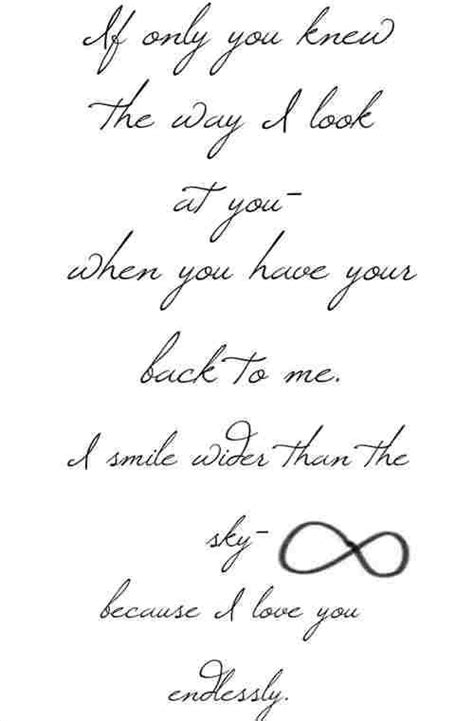 If only you knew
the way I look
at you-
when you have your
back to me.
I smile wider than the
sky-
because I love you
endlessly.